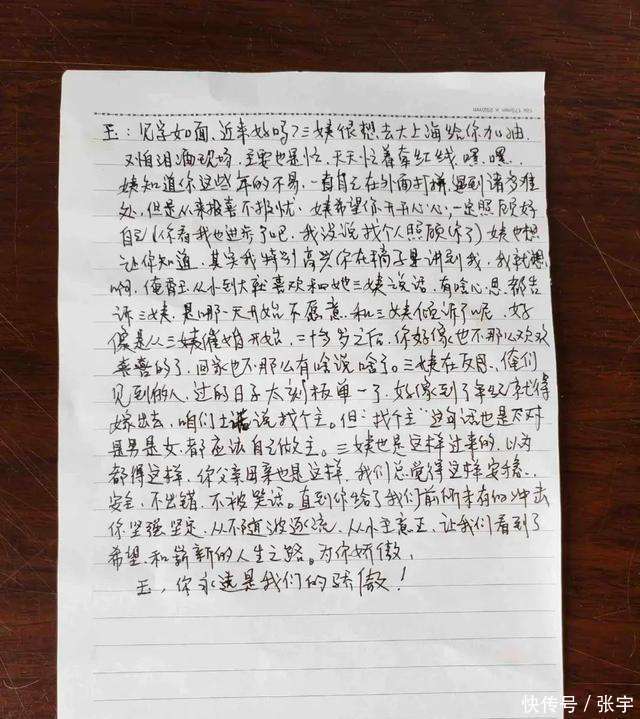 玉：见字如面，近来好吗？三姨很想去大上海给你加油
又怕泪洒现场，主要也是忙，天天忙着牵红线，嘿、嘿、
姨知道你这些年的不易，一直自己在外面打拼，遇到诸多难
处，但是从来报喜不报忧，姨希望你开开心心，一定照顾好
自己（你看我也进步了吧，我没说找个人照顾你了）姨也想
让你知道，其实我特别高兴你在稿子里讲到我，我就想
啊，俺晋玉从小到大就喜欢和她三姨说话，有啥心思都告
诉三姨，是哪一天开始不愿意和三姨倾诉了呢，好
像是从三姨催婚开始，二十多岁之后，你好像也不那么欢欢
喜喜的了，回家也不那么有啥说啥了。三姨在反思，俺们
见到的人，过的日子太刻板单一了，好像到了年纪就得
嫁出去，咱们土话说找个主。但“找个主”这句话也是不对
是男是女，都应该自己做主。三姨也是这样过来的，以为
都得这样，你父亲母亲也是这样，我们总觉得这样安稳、
安全，不出错，不被笑话。直到你给了我们前所未有的冲击
你坚强坚定，从不随波逐流，从小主意正，让我们看到了
希望和崭新的人生之路。为你骄傲，
玉，你永远是我们的骄傲！
快传号 / 张宇